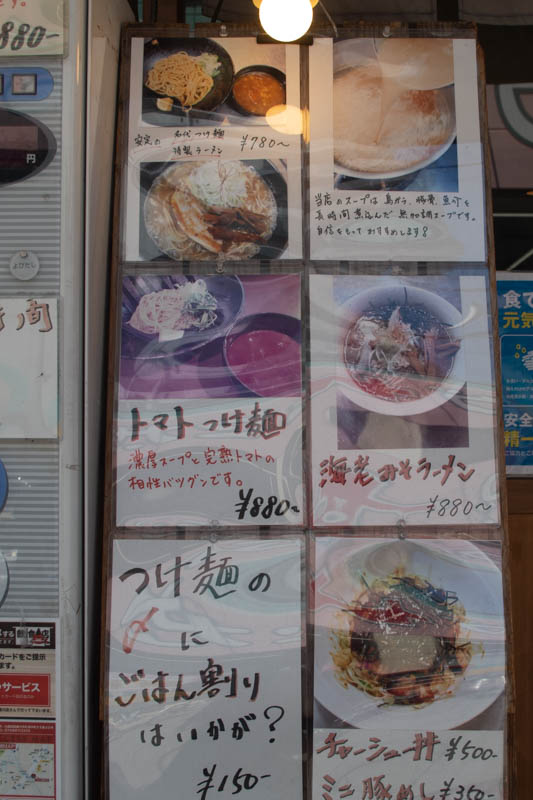 880-
円
よびだし
安定の 名代つけ麺
特製ラーメン ¥780〜
当店のスープは鳥がら、豚骨、魚介を
長時間煮込んだ無加調スープです。
自信をもっておすすめします!
トマトつけ麺
濃厚スープと完熟トマトの
相性バツグンです。
¥880〜
海老みそラーメン
¥880〜
つけ麺の
〆に
ごはん割り
はいかが?
¥150-
チャーシュー丼 ¥500-
ミニ豚めし ¥350-
食で
元気
安全
精一
カードをご提示
サービス